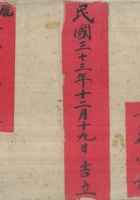 民國三十三年十二月十九日吉立